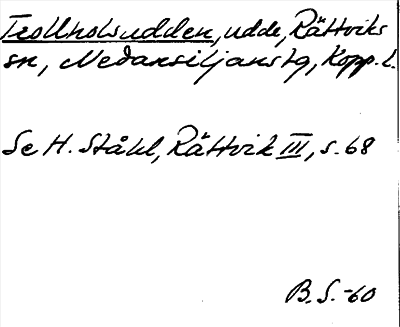 Trollholsudden, udde, Rättviks
sn, Nedansiljans tg, Kopp. l.
Se H. Ståhl, Rättvik III, s. 68
B. S. -60